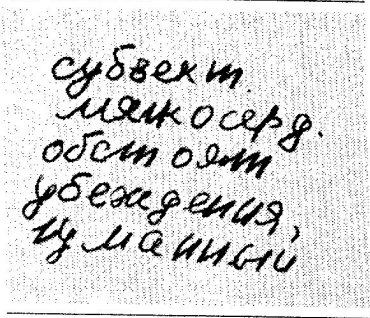 субъект.
мягкосерд.
обстоят
убеждения,
гуманный